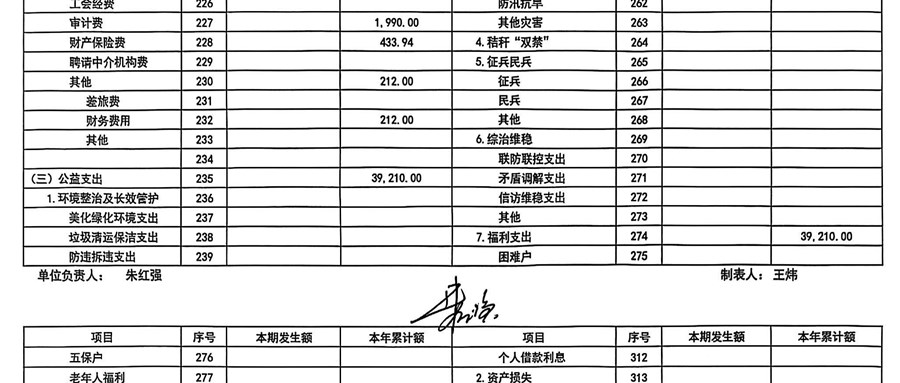 工会经费 226 防汛抗旱 262
审计费 227 1,990.00 其他灾害 263
财产保险费 228 433.94 4.秸秆“双禁” 264
聘请中介机构费 229 5.征兵民兵 265
其他 230 212.00 征兵 266
差旅费 231 民兵 267
财务费用 232 212.00 其他 268
其他 233 6.综治维稳 269
234 联防联控支出 270
(三)公益支出 235 39,210.00 矛盾调解支出 271
1.环境整治及长效管护 236 信访维稳支出 272
美化绿化环境支出 237 其他 273
垃圾清运保洁支出 238 7.福利支出 274 39,210.00
防违拆违支出 239 困难户 275
单位负责人: 朱红强 制表人:王炜
项目 序号 本期发生额 本年累计额 项目 序号 本期发生额 本年累计额
五保户 276 个人借款利息 312
老年人福利 277 2.资产损失 313